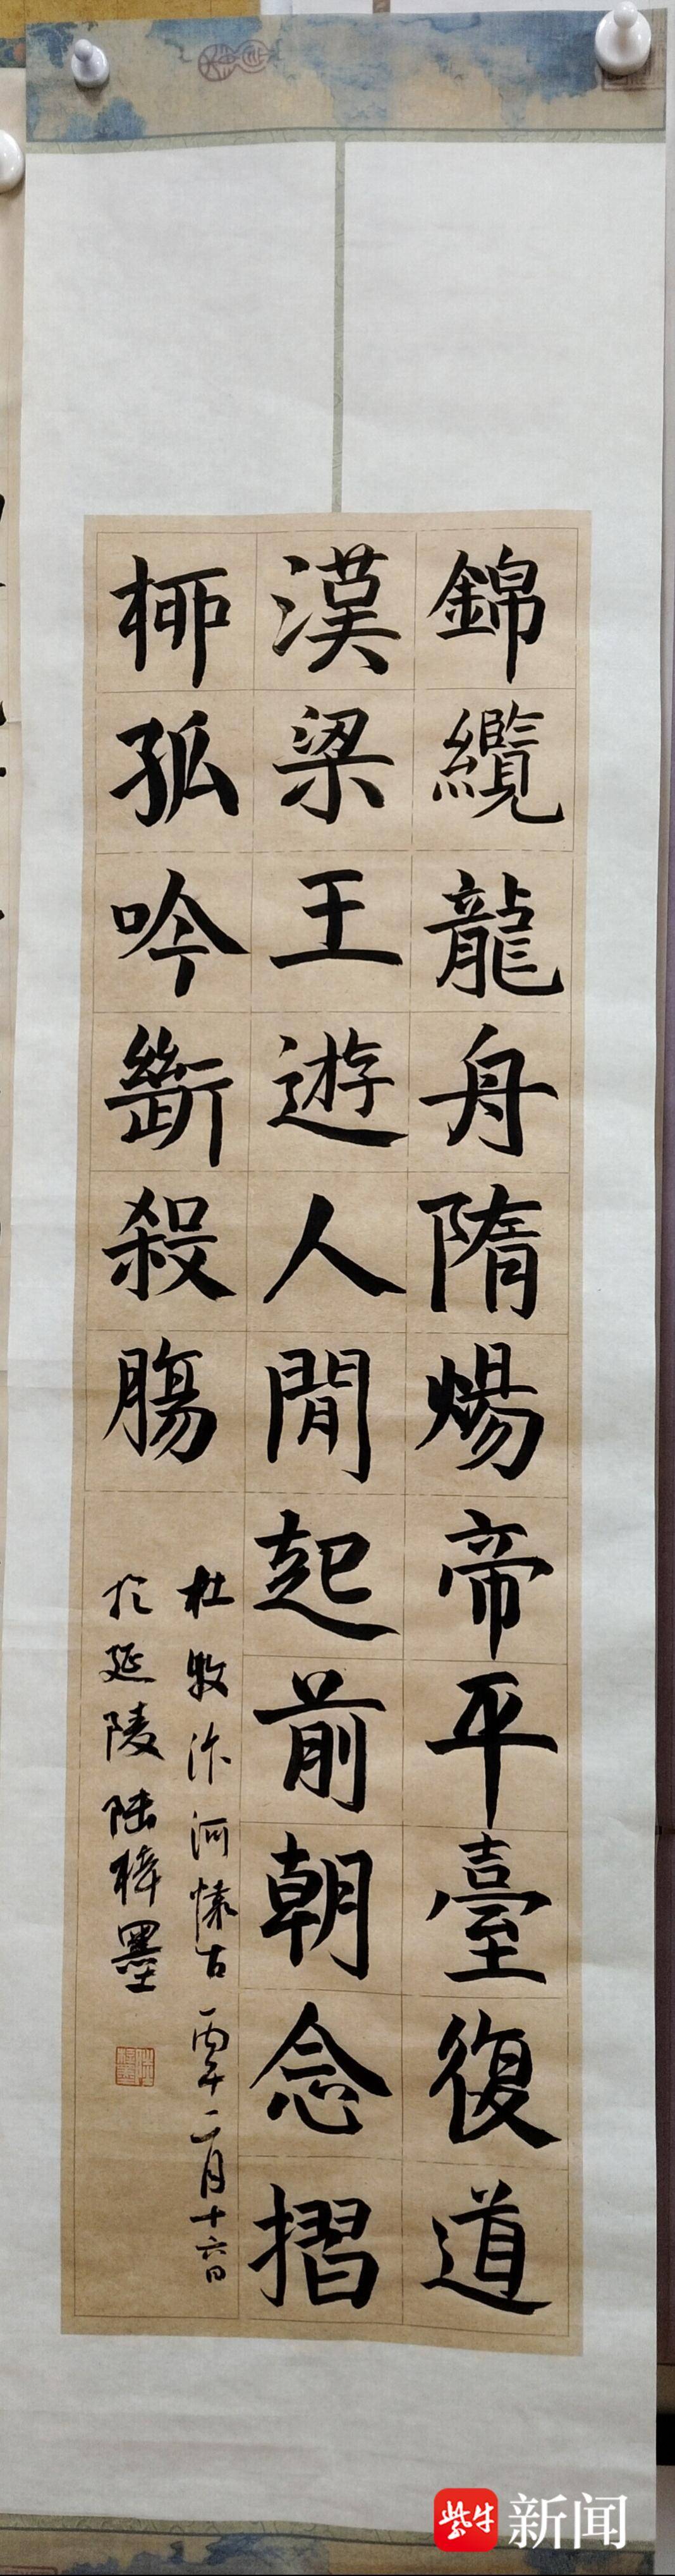 錦纜龍舟隋煬帝平臺復道
漢梁王遊人閒起前朝念摺
桺孤吟斷殺腸
杜牧汴河懷古 丙午二月十六日
於延陵陸樟墨
紫牛新闻